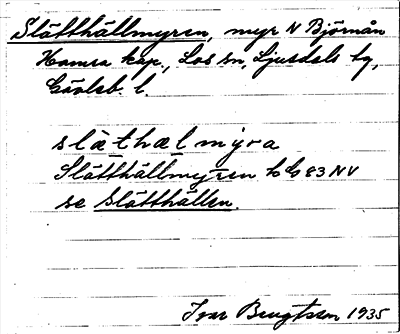 Slåtthällmyren, myr N Björnån
Hamra kap., Los sn, Ljusdals tg,
Gävleb. l.
slåthælmýra
Slåtthällmyren bG 83 NV
se Slåtthällen.
Ivar Bengtsson 1935